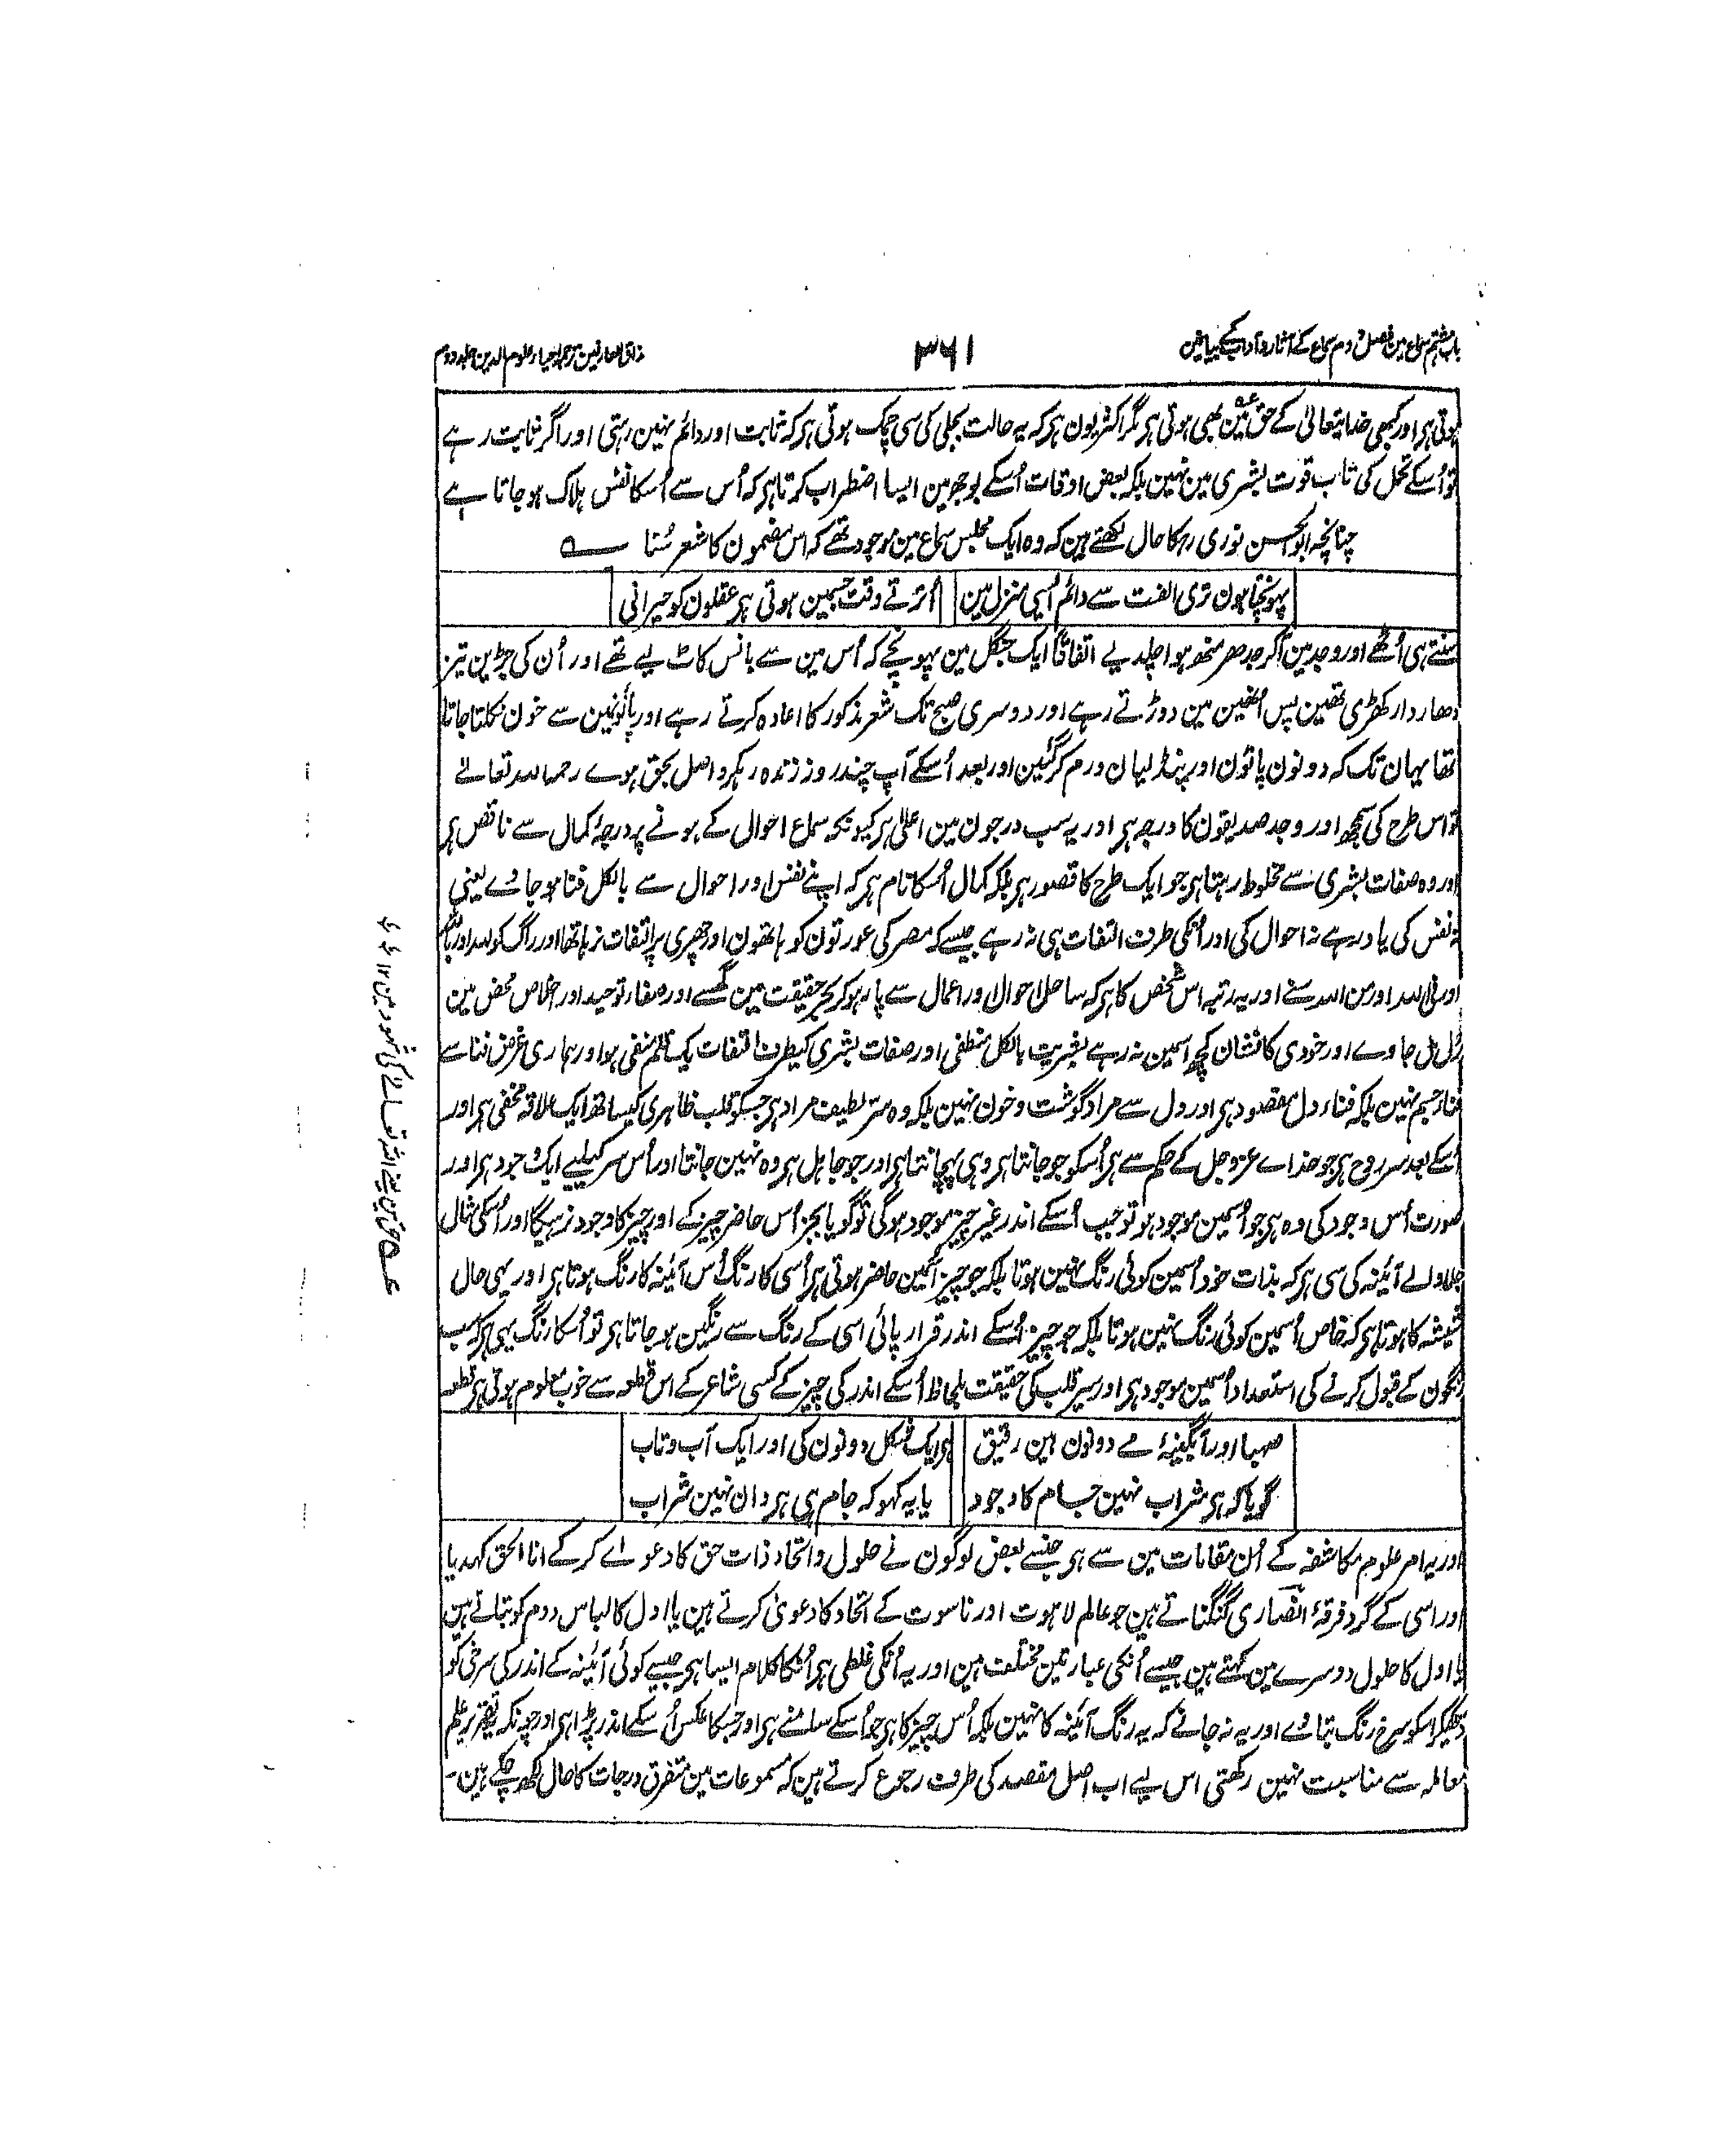 باب ہشتم سماع مین فصل دوم سماع کے آثار و آداب کے بیان مین
۳۶۱
مذاق العارفین ترجمہ احیاء علوم الدین جلد دوم
ہوتی ہر اور کبھی خدایتعالیٰ کے حق مین بھی ہوتی ہر مگر اکثر یون ہر کہ یہ حالت بجلی کی سی چمک ہوتی ہر کہ ثابت اور دائم نہین رہتی اور اگر ثابت رہے
تو اُسکے تحمل کی تاب قوت بشری مین نہین بلکہ بعض اوقات اُسکے بوجھ مین ایسا اضطراب کرتا ہر کہ اُس سے اُسکا نفس ہلاک ہو جاتا ہے
چنانچہ ابو الحسن نوری رہ کا حال لکھتے ہین کہ وہ ایک مجلس سماع مین موجود تھے کہ اس مضمون کا شعر سُنا ؎
پہونچتا ہون تری الفت سے دائم اُسی منزل مین
اُترتے وقت جسمین ہوتی ہر عقلون کو حیرانی
سنتے ہی اُٹھے اور وجد مین آکر جدھر منھ ہوا چلدیے اتفاقاً ایک جنگل مین پہونچے کہ اُس مین سے بانس کاٹ لیے تھے اور اُن کی جڑین تیز
دھار دار کھڑی تھین پس اُنھین مین دوڑتے رہے اور دوسری صبح تک شعر مذکور کا اعادہ کرتے رہے اور پانون مین سے خون نکلتا جاتا
تھا یہان تک کہ دونون پانون اور پنڈلیان ورم کر گئین اور بعد اُسکے آپ چند روز زندہ رہکر واصل بحق ہوے رحمہ اللہ تعالےٰ
تو اس طرح کی سمجھ اور وجد صدیقون کا درجہ ہر اور یہ سب درجون مین اعلیٰ ہر کیونکہ سماع احوال کے ہونے پر درجۂ کمال سے ناقص ہر
اور وہ صفات بشری سے مخلوط رہتا ہر جو ایک طرح کا قصور ہر بلکہ کمال اُسکا نام ہر کہ اپنے نفس اور احوال سے بالکل فنا ہو جاوے یعنی
نہ نفس کی یاد رہے نہ احوال کی اور اُنکی طرف التفات ہی نہ رہے جیسے کہ مصر کی عورتون کو ہاتھون اور چھری پر التفات نہ رہا تھا اور راگ کو للہ اور باللہ
اور فی اللہ اور من اللہ سنے اور یہ رتبہ اس شخص کا ہر کہ ساحل احوال اور اعمال سے پار ہو کر بحر حقیقت مین گھسے اور صفاء توحید اور اخلاص محض مین
رل مل جاوے اور خودی کا نشان کچھ اسمین نہ رہے بشریت بالکل منطفی اور صفات بشری کیطرف التفات یک قلم منفی ہو اور ہماری غرض فنا سے
فناء جسم نہین بلکہ فناء دل مقصود ہر اور دل سے مراد گوشت و خون نہین بلکہ وہ سر لطیف مراد ہر جسکو قلب ظاہری کیساتھ ایک علاقہ مخفی ہر اور
اُسکے بعد سر روح ہر جو خداے عزوجل کے حکم سے ہر اُسکو جو جانتا ہر وہی پہچانتا ہر اور جو جاہل ہر وہ نہین جانتا اور اُس سر کیلیے ایک وجود ہر اور
صورت اُس وجود کی وہ ہر جو اُسمین موجود ہو تو جب اُسکے اندر غیر چیز موجود ہوگی تو گویا بجز اُس حاضر چیز کے اور چیز کا وجود نہ رہیگا اور اُسکی مثال
جلا والے آئینہ کی سی ہر کہ بذات خود اُسمین کوئی رنگ نہین ہوتا بلکہ جو چیز اُسمین حاضر ہوتی ہر اُسی کا رنگ اُس آئینہ کا رنگ ہوتا ہر اور یہی حال
شیشہ کا ہوتا ہر کہ خاص اُسمین کوئی رنگ نہین ہوتا بلکہ جو چیز اُسکے اندر قرار پائی اسی کے رنگ سے رنگین ہو جاتا ہر تو اُسکا رنگ یہی ہر کہ سب
رنگون کے قبول کرنے کی استعداد اُسمین موجود ہر اور سر قلب کی حقیقت بلحاظ اُسکے اندر کی چیز کے کسی شاعر کے اس قطعہ سے خوب معلوم ہوتی ہر قطعہ
صہبا اور آبگینۂ مے دونون ہین رقیق
ہر ایک شکل دونون کی اور ایک آب و تاب
گویا کہ ہر شراب نہین جام کا وجود
یا یہ کہو کہ جام ہی ہر وان نہین شراب
اور یہ امر علوم مکاشفہ کے اُن مقامات مین سے ہر جنسے بعض لوگون نے حلول و اتحاد ذات حق کا دعوے کرکے انا الحق کہدیا
اور اسی کے گرد فرقۂ انصاری گنگناتے ہین جو عالم لاہوت اور ناسوت کے اتحاد کا دعویٰ کرتے ہین یا اول کا لباس دوم کو بتاتے ہین
یا اول کا حلول دوسرے مین کہتے ہین جیسے اُنکی عبارتین مختلف ہین اور یہ اُنکی غلطی ہر اُنکا کلام ایسا ہر جیسے کوئی آئینہ کے اندر کی سرخی کو
دیکھکر اسکو سرخ رنگ بتاوے اور یہ نہ جانے کہ یہ رنگ آئینہ کا نہین بلکہ اُس چیز کا ہر جو اُسکے سامنے ہر اور جسکا عکس اُسکے اندر پڑا ہر اور چونکہ یہ تقریر علم
معاملہ سے مناسبت نہین رکھتی اس لیے اب اصل مقصد کی طرف رجوع کرتے ہین کہ مسموعات مین متفرق درجات کا حال لکھ چکے ہین۔
عہ حق مین یعنے اللہ تعالے کی شہود مین ۱۲